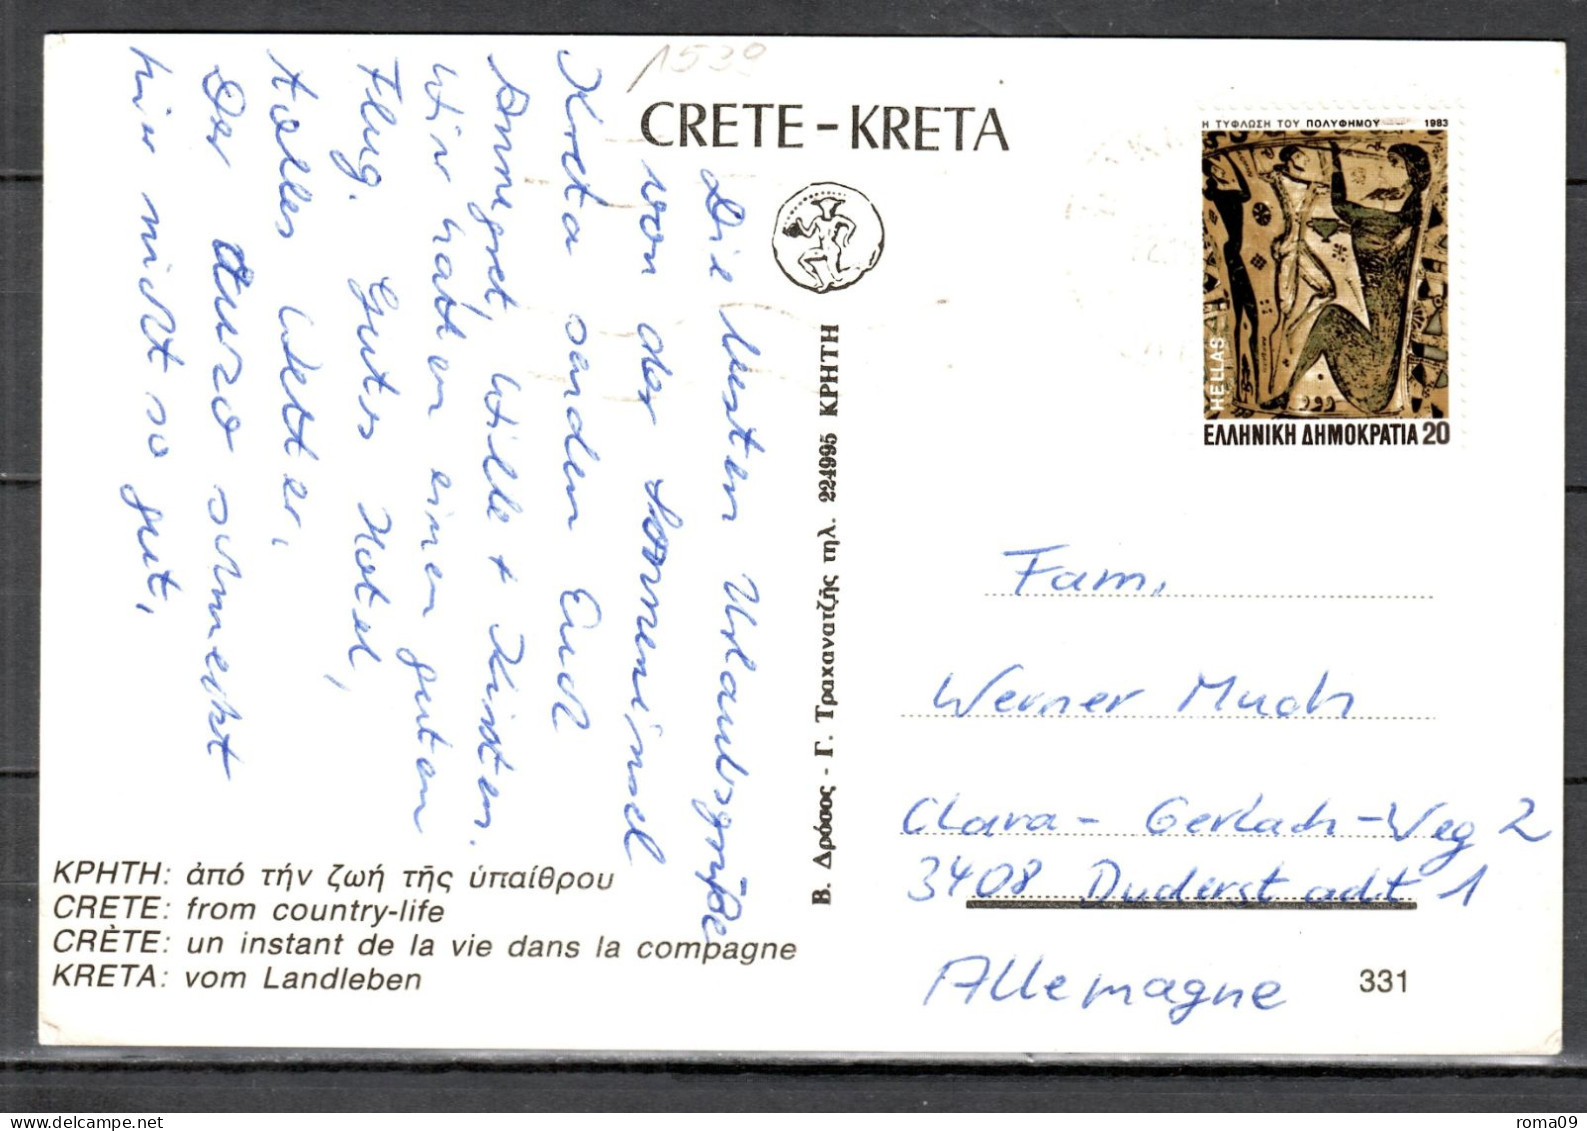 1539
CRETE – KRETA
Η ΤΥΦΛΩΣΗ ΤΟΥ ΠΟΛΥΦΗΜΟΥ 1983
HELLAS
ΕΛΛΗΝΙΚΗ ΔΗΜΟΚΡΑΤΙΑ 20
Die besten Urlaubsgrüße
von der Sonneninsel
Kreta senden Euch
Annegret, Wille + Kirsten.
Wir hatten einen guten
Flug. Gutes Hotel,
tolles Wetter,
Der Ouzo schmeckt
hier nicht so gut.
Β. Δρόσος - Γ. Τραχανατζής τηλ. 224995 ΚΡΗΤΗ
Fam.
Werner Much
Clara-Gerlach-Weg 2
3408 Duderstadt 1
Allemagne
ΚΡΗΤΗ: ἀπό τήν ζωή τῆς ὑπαίθρου
CRETE: from country-life
CRÈTE: un instant de la vie dans la compagne
KRETA: vom Landleben
331
roma09